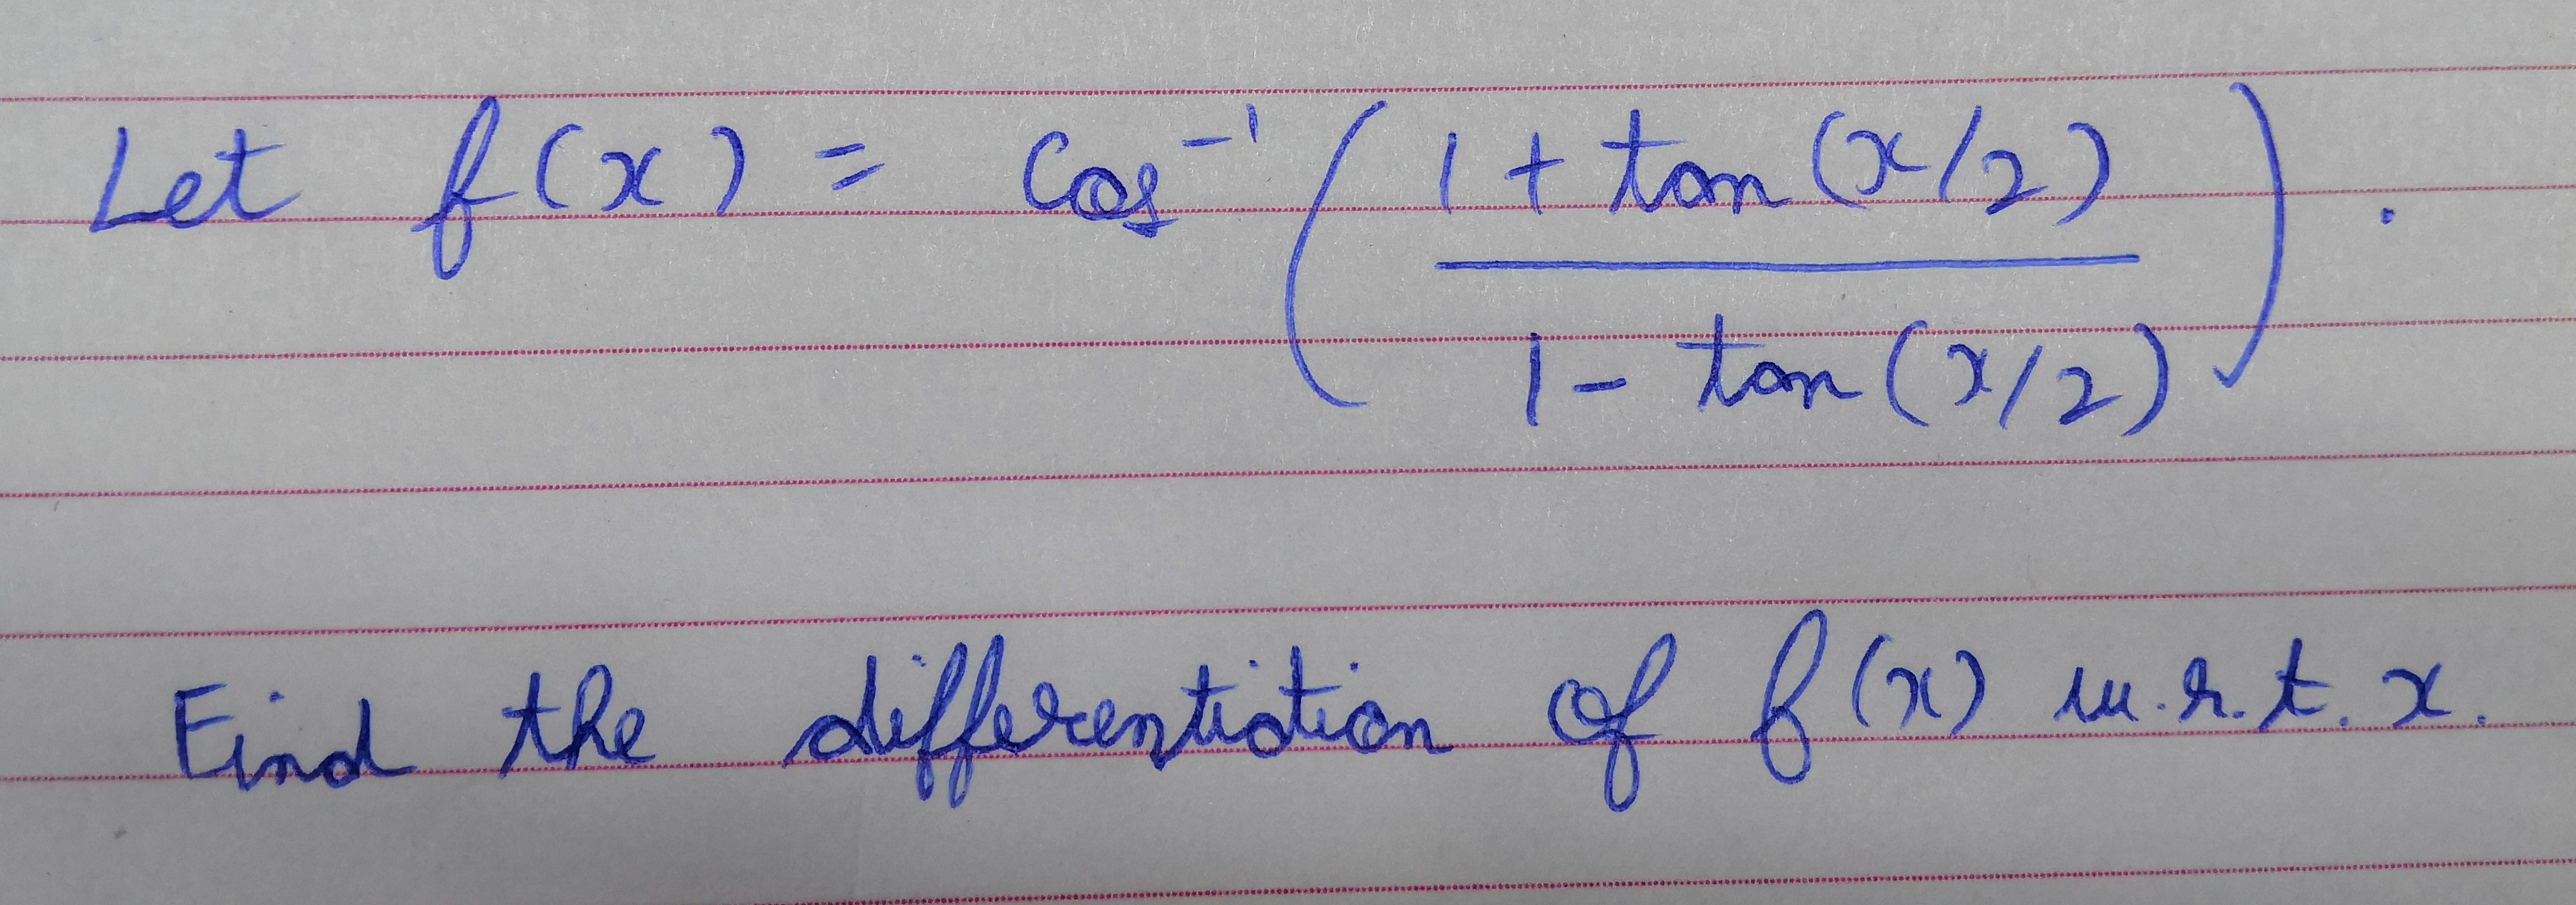 Let f(x) = cos⁻¹ ( (1 + tan(x/2)) / (1 - tan(x/2)) ).
Find the differentiation of f(x) w.r.t. x.